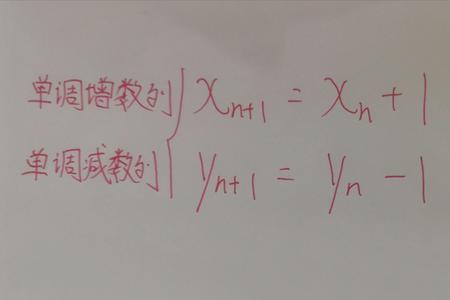 单调增数列 { x_{n+1} = x_n + 1
单调减数列 { y_{n+1} = y_n - 1